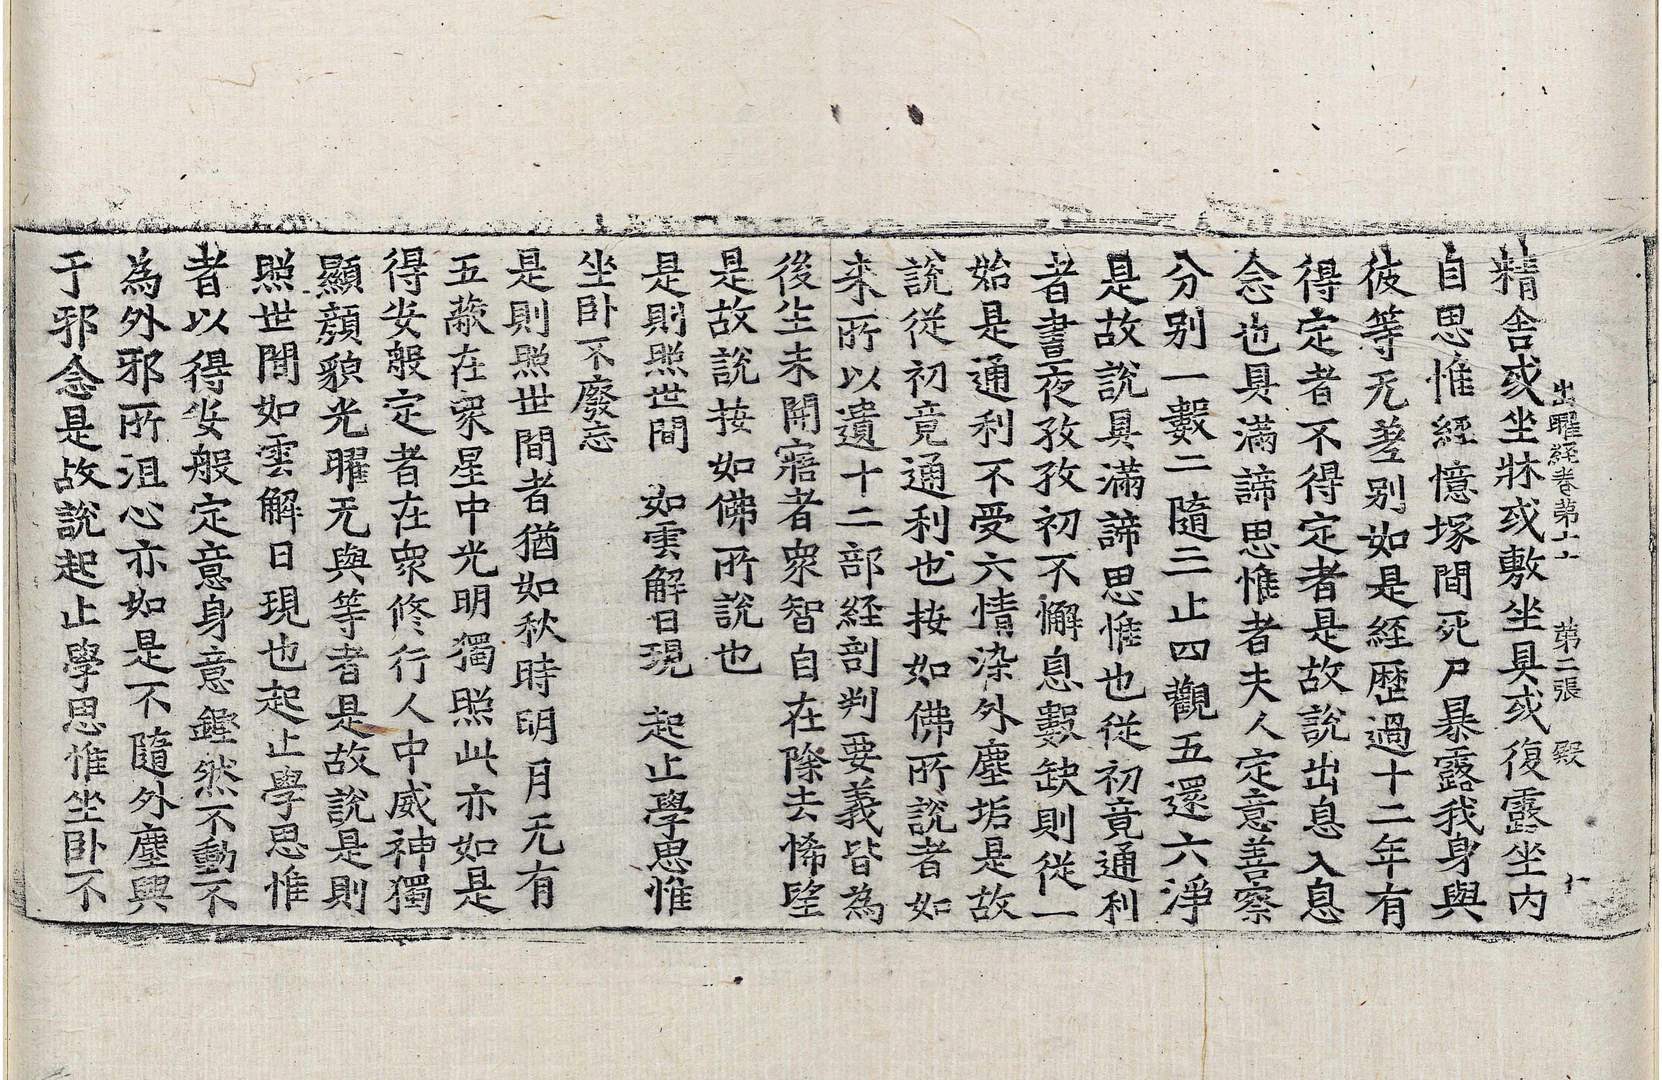 出曜經卷第十七 第二張 殿
精舍或坐牀或敷坐具或復露坐內
自思惟經憶塚間死尸暴露我身與
彼等无差别如是經歷過十二年有
得定者不得定者是故說出息入息
念也具滿諦思惟者夫人定意善察
分别一數二隨三止四觀五還六淨
是故說具滿諦思惟也從初竟通利
者晝夜孜孜初不懈息數缺則從一
始是通利不受六情染外塵垢是故
說從初竟通利也按如佛所說者如
来所以遺十二部經剖判要義皆為
後生未開寤者衆智自在除去悕望
是故說按如佛所說也
是則照世間 如雲解日現 起止學思惟
坐卧不廢忘
是則照世間者猶如秋時明月无有
五蔽在衆星中光明獨照此亦如是
得安般定者在衆修行人中威神獨
顯顏貌光曜无與等者是故說是則
照世間如雲解日現也起止學思惟
者以得安般定意身意鏗然不動不
為外邪所沮心亦如是不隨外塵興
于邪念是故說起止學思惟坐卧不